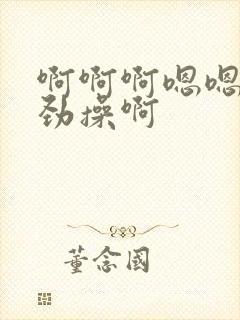 啊啊啊嗯嗯
劲操啊
董念国